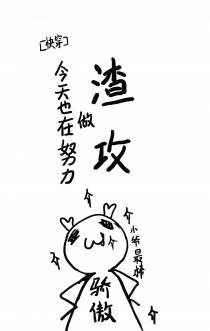 [快穿]
今天也在努力
做
渣攻
小爷最棒
骄傲